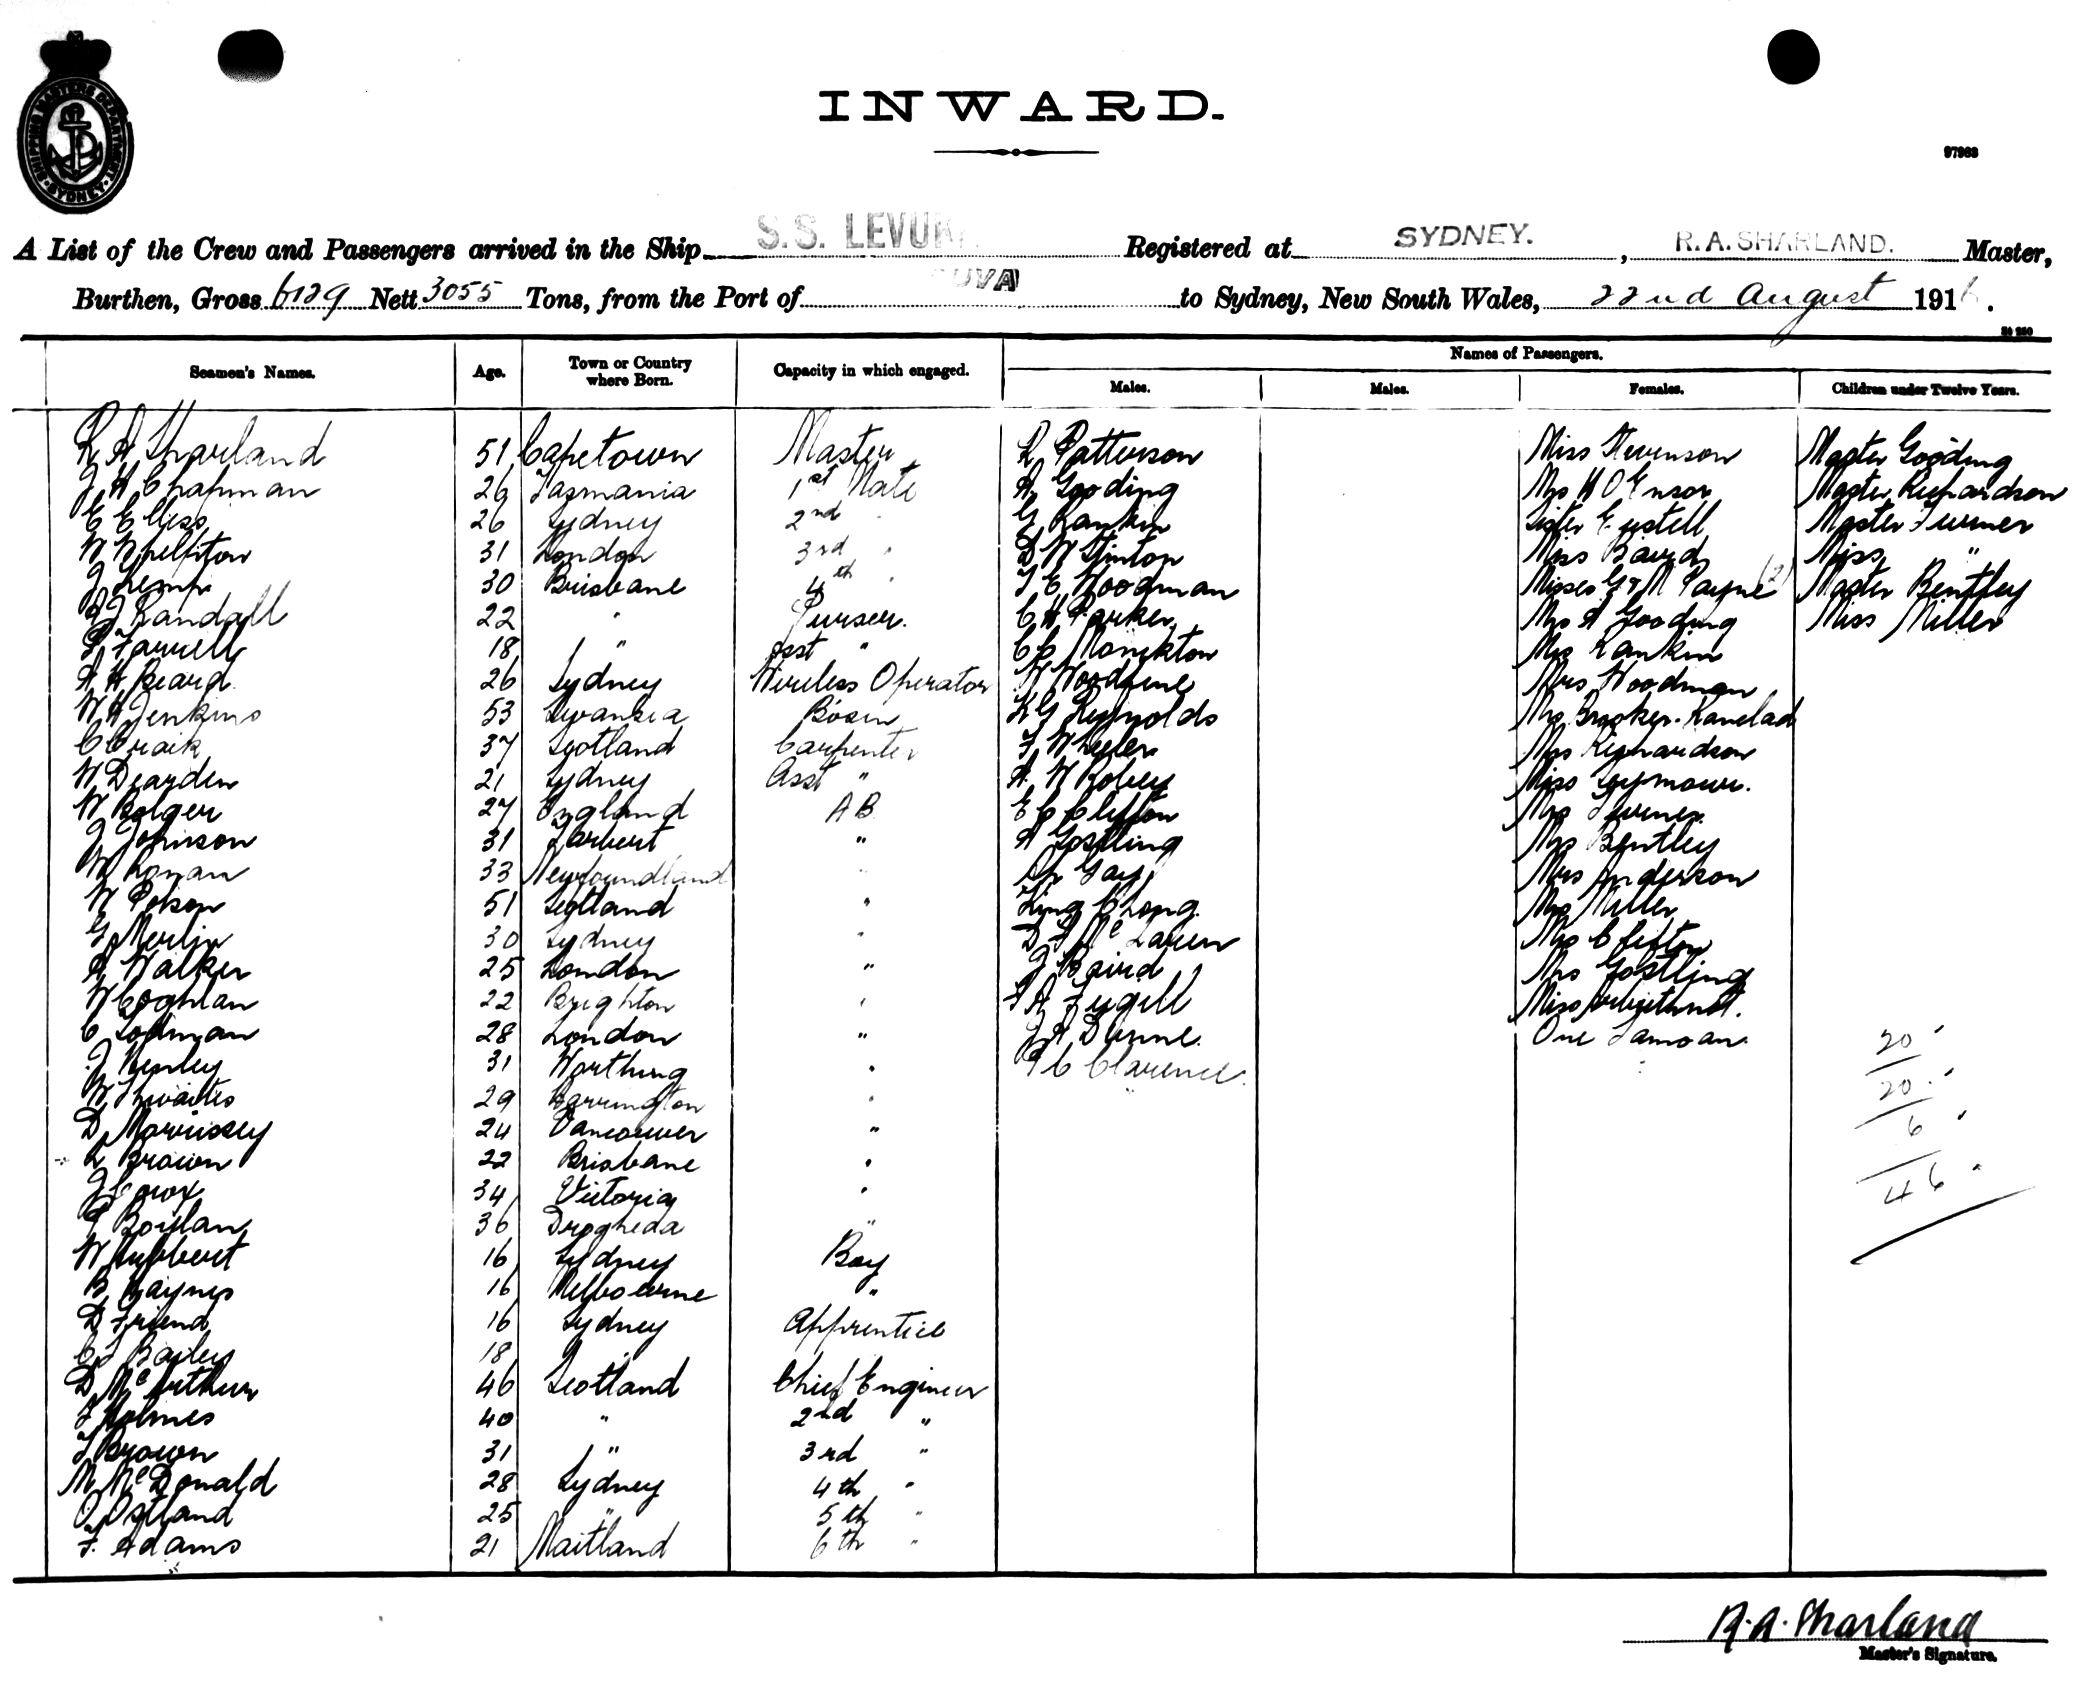 SHIPPING MASTERS DEPARTMENT · SYDNEY ·
INWARD.
97963
A List of the Crew and Passengers arrived in the Ship S.S. LEVUKA Registered at SYDNEY. , R. A. SHARLAND. Master,
Burthen, Gross 6129 Nett 3055 Tons, from the Port of SUVA to Sydney, New South Wales, 22nd August 1916.
Names of Passengers.
Seamen's Names. Age. Town or Country where Born. Capacity in which engaged. Males. Males. Females. Children under Twelve Years.
R A Sharland 51 Capetown Master R Patterson Miss Stevenson Master Gooding
J H Chapman 26 Tasmania 1st Mate A Gooding Mrs H O Ensor Master Richardson
C E Bliss 26 Sydney 2nd " G Rankin Sister Master Turner
W 31 London 3rd " D W Hinton Miss Baird Miss "
J Kemp 30 Brisbane 4th " T E Woodman Misses G & M Payne (2) Master Bentley
Randall 22 " Purser. C H Parker Mrs A Gooding Miss Miller
P Farrell 18 " Asst " C C Monckton Mrs Rankin
A H Beard 26 Sydney Wireless Operator W Woodbine Mrs Woodman
W H Jenkins 53 Swansea Bosun Reynolds Mrs Brooker-
C Craik 37 Scotland Carpenter F Wheeler Mrs Richardson
W Dearden 21 Sydney Asst " A. W Robey Miss Seymour.
W Bolger 27 England A B E C Clifton Mrs Turner
J Johnson 31 Tarbert " A Gostling Mrs Bentley
W Ronan 33 Newfoundland " Ah Gay Mrs Anderson
W Polson 51 Scotland " King Chong. Mrs Miller
G Merlin 30 Sydney " D McLaren Mrs Clifton
A Walker 25 London " J Baird Mrs Gostling
W Coghlan 22 Brighton " Miss Arbuthnot.
C 28 London " J A Dunne. One Samoan.
J Henley 31 Worthing " P C Clarence.
W Thwaites 29 Carrington "
D Morrissey 24 Vancouver "
L Brown 22 Brisbane "
J Cowx 34 Victoria "
P Boylan 36 Drogheda "
W Hubbert 16 Sydney Boy
B Haynes 16 Melbourne "
D Friend 16 Sydney Apprentice
C J Bailey 18 "
D McArthur 46 Scotland Chief Engineer
J Holmes 40 " 2nd "
J Brown 31 " 3rd "
M McDonald 28 Sydney 4th "
O Ostland 25 " 5th "
F. Adams 21 Maitland 6th "
20
20
6
46
R. A. Sharland
Master's Signature.